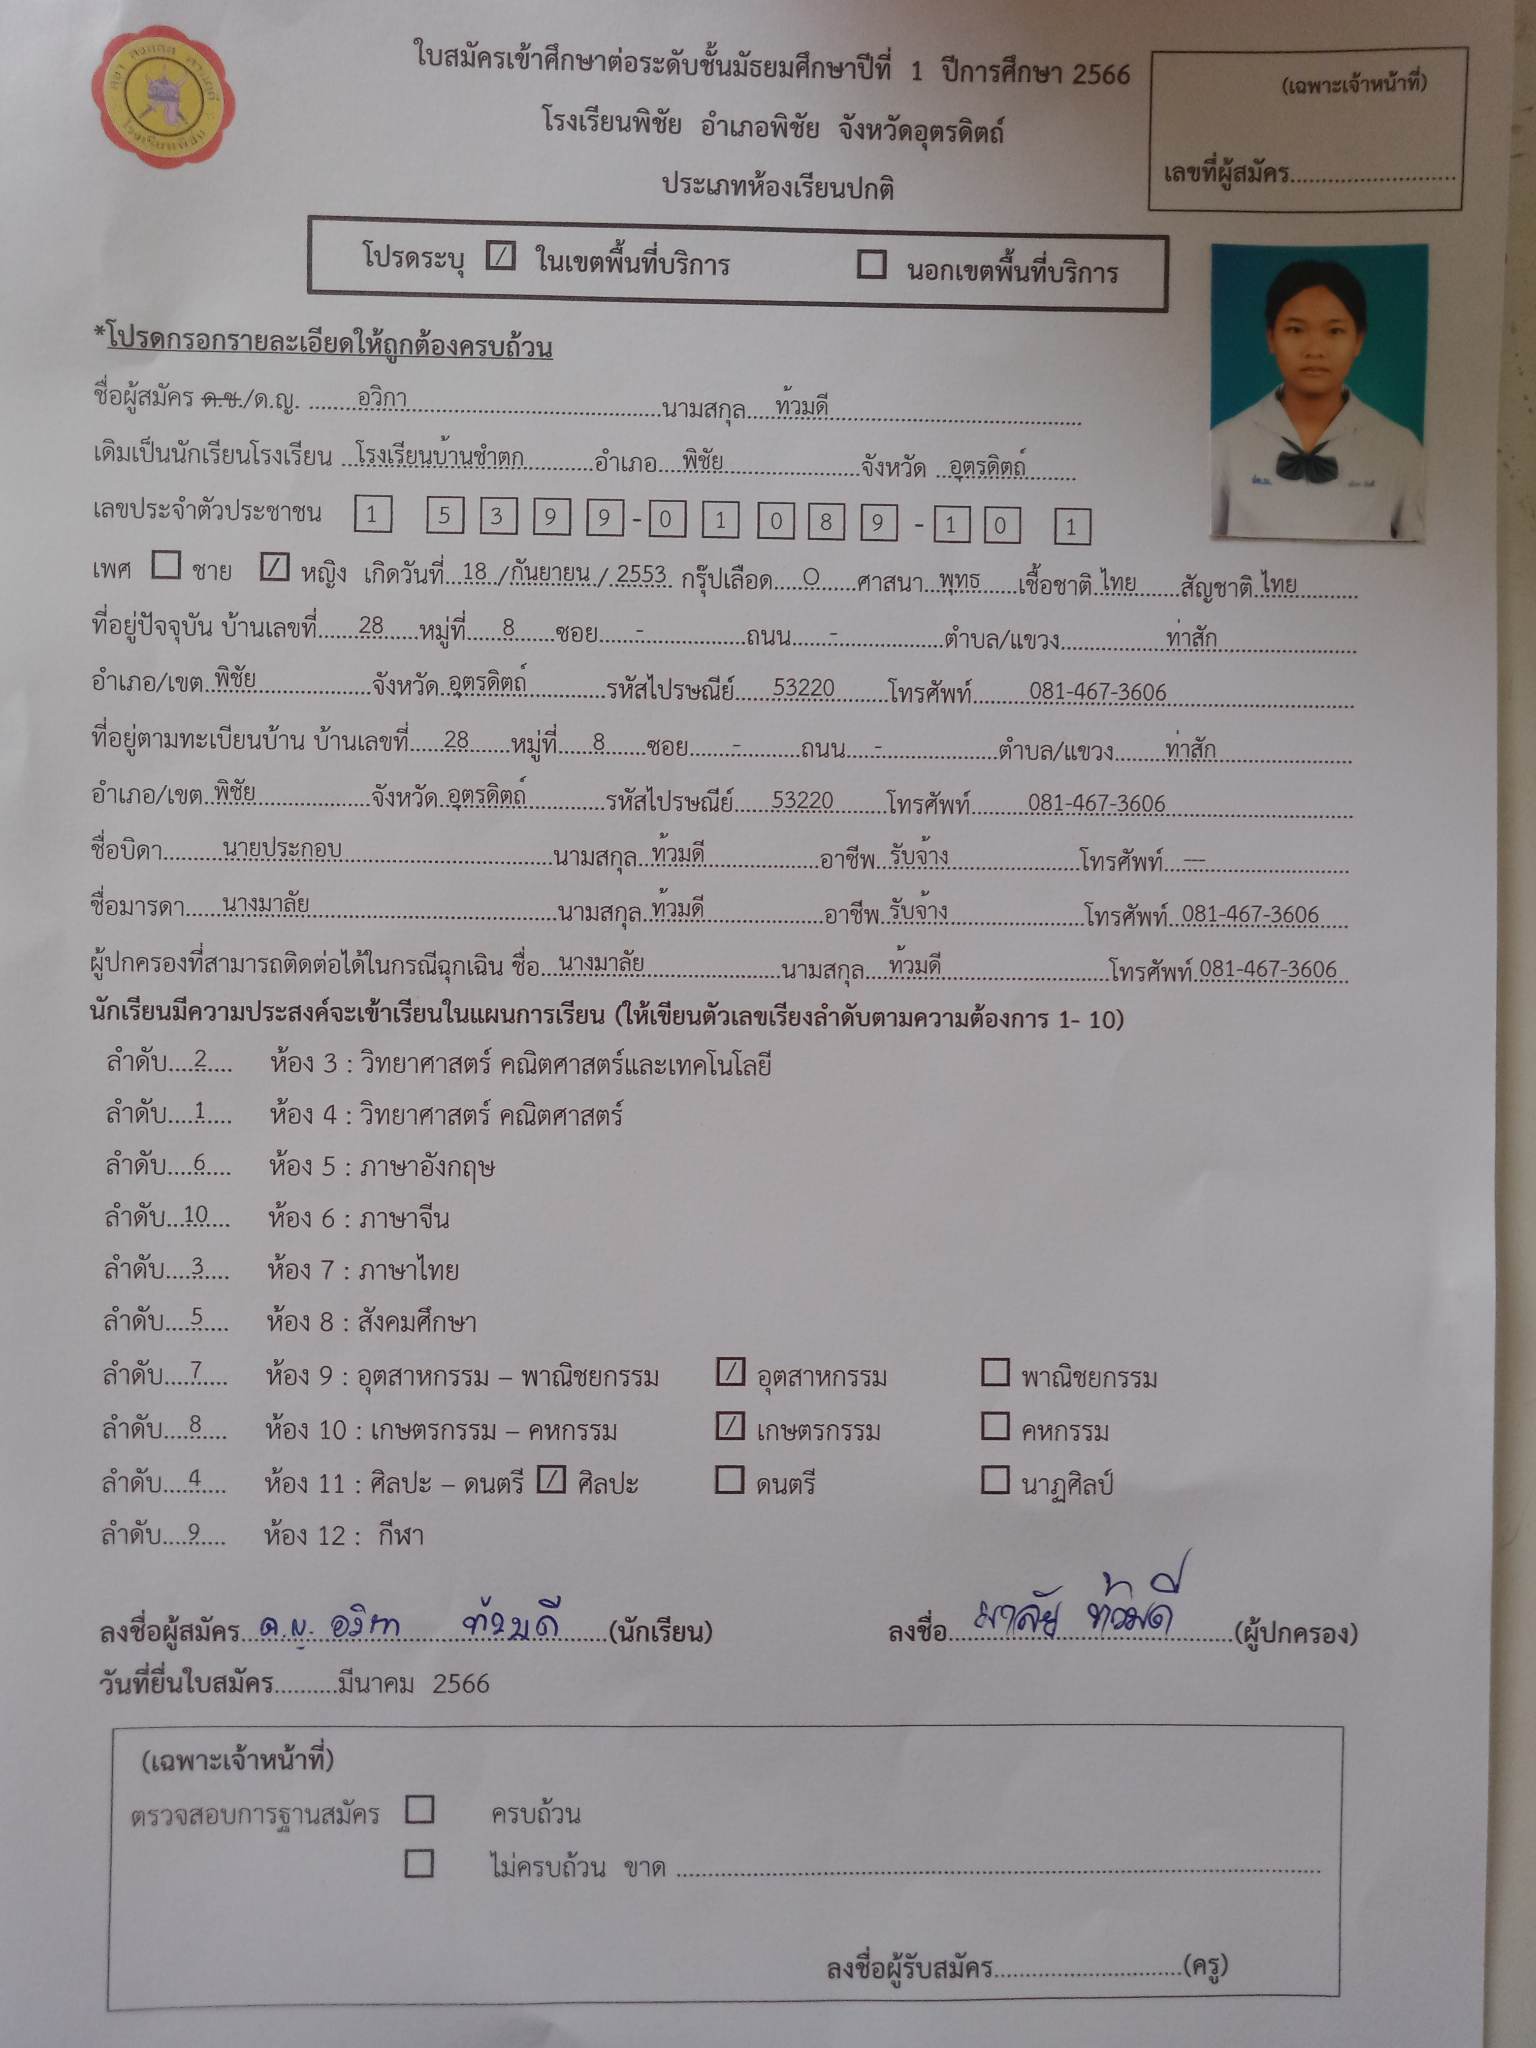 ใบสมัครเข้าศึกษาต่อระดับชั้นมัธยมศึกษาปีที่ 1 ปีการศึกษา 2566
โรงเรียนพิชัย อำเภอพิชัย จังหวัดอุตรดิตถ์
ประเภทห้องเรียนปกติ
(เฉพาะเจ้าหน้าที่)
เลขที่ผู้สมัคร..........................
โปรดระบุ ☑ ในเขตพื้นที่บริการ ☐ นอกเขตพื้นที่บริการ
*โปรดกรอกรายละเอียดให้ถูกต้องครบถ้วน
ชื่อผู้สมัคร ด.ช./ด.ญ. อวิกา นามสกุล ท้วมดี
เดิมเป็นนักเรียนโรงเรียน โรงเรียนบ้านชำตก อำเภอ พิชัย จังหวัด อุตรดิตถ์
เลขประจำตัวประชาชน 1 5 3 9 9 - 0 1 0 8 9 - 1 0 1
เพศ ☐ ชาย ☑ หญิง เกิดวันที่ 18 / กันยายน / 2553 กรุ๊ปเลือด O ศาสนา พุทธ เชื้อชาติ ไทย สัญชาติ ไทย
ที่อยู่ปัจจุบัน บ้านเลขที่ 28 หมู่ที่ 8 ซอย - ถนน - ตำบล/แขวง ท่าสัก
อำเภอ/เขต พิชัย จังหวัด อุตรดิตถ์ รหัสไปรษณีย์ 53220 โทรศัพท์ 081-467-3606
ที่อยู่ตามทะเบียนบ้าน บ้านเลขที่ 28 หมู่ที่ 8 ซอย - ถนน - ตำบล/แขวง ท่าสัก
อำเภอ/เขต พิชัย จังหวัด อุตรดิตถ์ รหัสไปรษณีย์ 53220 โทรศัพท์ 081-467-3606
ชื่อบิดา นายประกอบ นามสกุล ท้วมดี อาชีพ รับจ้าง โทรศัพท์ ---
ชื่อมารดา นางมาลัย นามสกุล ท้วมดี อาชีพ รับจ้าง โทรศัพท์ 081-467-3606
ผู้ปกครองที่สามารถติดต่อได้ในกรณีฉุกเฉิน ชื่อ นางมาลัย นามสกุล ท้วมดี โทรศัพท์ 081-467-3606
นักเรียนมีความประสงค์จะเข้าเรียนในแผนการเรียน (ให้เขียนตัวเลขเรียงลำดับตามความต้องการ 1- 10)
ลำดับ 2 ห้อง 3 : วิทยาศาสตร์ คณิตศาสตร์และเทคโนโลยี
ลำดับ 1 ห้อง 4 : วิทยาศาสตร์ คณิตศาสตร์
ลำดับ 6 ห้อง 5 : ภาษาอังกฤษ
ลำดับ 10 ห้อง 6 : ภาษาจีน
ลำดับ 3 ห้อง 7 : ภาษาไทย
ลำดับ 5 ห้อง 8 : สังคมศึกษา
ลำดับ 7 ห้อง 9 : อุตสาหกรรม – พาณิชยกรรม ☑ อุตสาหกรรม ☐ พาณิชยกรรม
ลำดับ 8 ห้อง 10 : เกษตรกรรม – คหกรรม ☑ เกษตรกรรม ☐ คหกรรม
ลำดับ 4 ห้อง 11 : ศิลปะ – ดนตรี ☑ ศิลปะ ☐ ดนตรี ☐ นาฏศิลป์
ลำดับ 9 ห้อง 12 : กีฬา
ลงชื่อผู้สมัคร ด.ญ. อวิกา ท้วมดี (นักเรียน) ลงชื่อ มาลัย ท้วมดี (ผู้ปกครอง)
วันที่ยื่นใบสมัคร..........มีนาคม 2566
(เฉพาะเจ้าหน้าที่)
ตรวจสอบการฐานสมัคร ☐ ครบถ้วน
☐ ไม่ครบถ้วน ขาด ..........
ลงชื่อผู้รับสมัคร..............................(ครู)